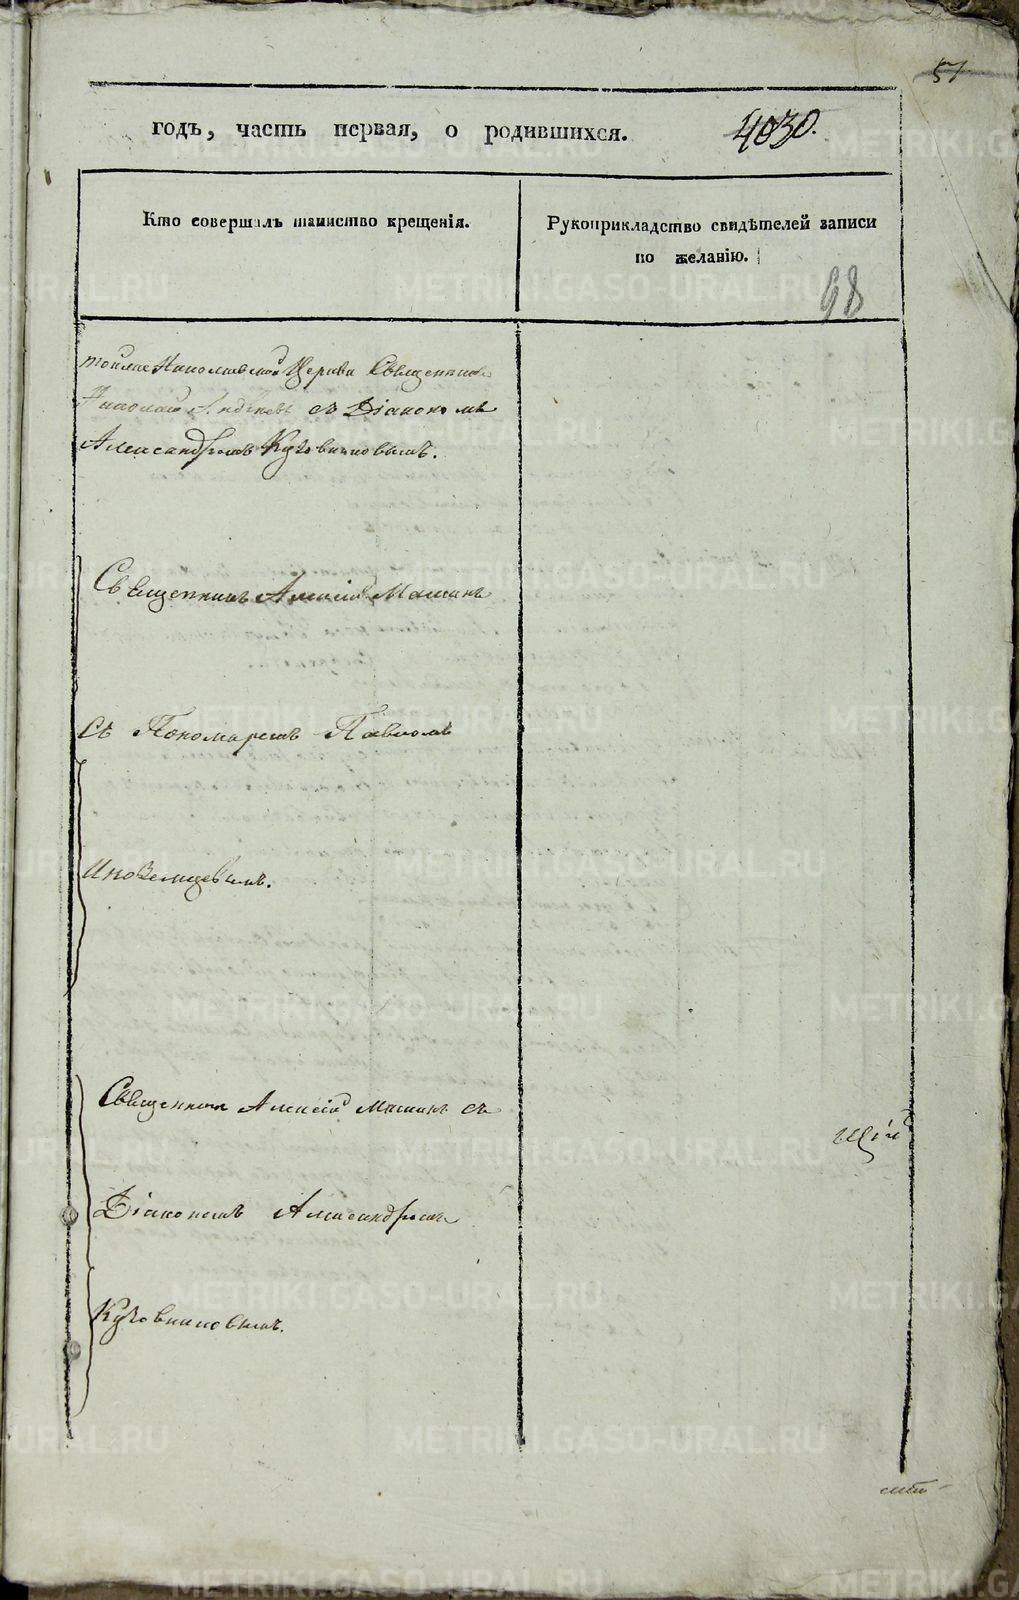 57
годъ, часть первая, о родившихся. 4030.
Кто совершалъ таинство крещенія.
Рукоприкладство свидѣтелей записи
по желанію.
98
тойже Николаевской Церкви Священникъ
Николай съ Діакономъ
Александромъ Кузовниковымъ.
Священникъ Алексій Машинъ
съ Пономаремъ Павломъ
Иноземцевымъ.
Священникъ Алексій Машинъ съ
щій
Діакономъ Александромъ
Кузовниковымъ.
METRIKI.GASO-URAL.RU